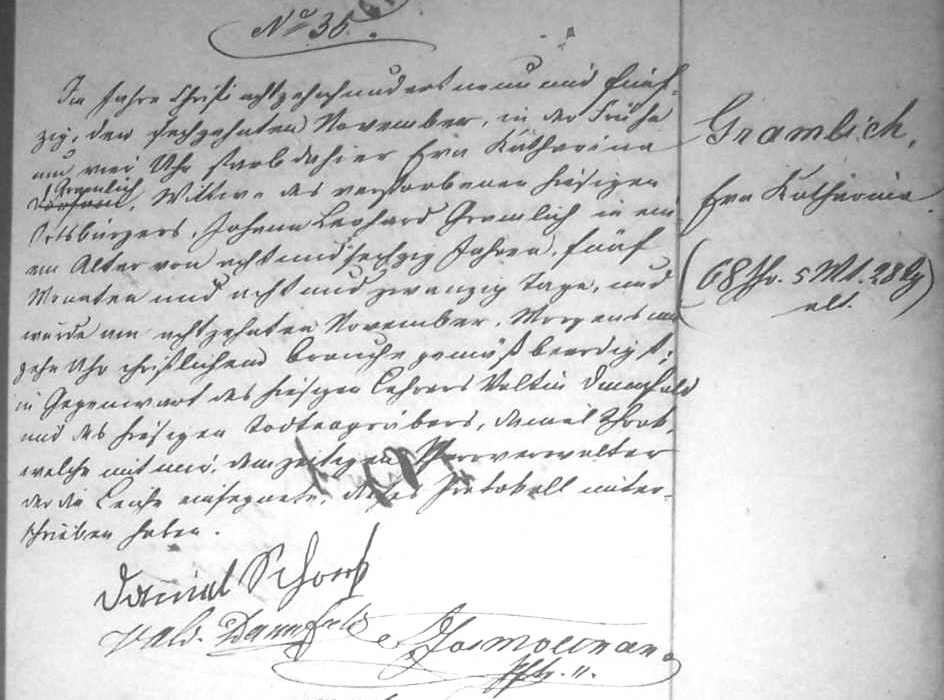 No 35.
Im Jahre Christi achtzehnhundert neun und fünf-
zig, den sechzehnten November, in der Frühe
um vier Uhr starb dahier Eva Katharina
Gramlich, Wittwe des verstorbenen hiesigen
Ortsbürgers, Johann Leonhard Gramlich in ein
em Alter von acht und sechzig Jahren, fünf
Monaten und acht und zwanzig Tage, und
wurde am achtzehnten November, Morgens um
zehn Uhr christlichem Brauche gemäß beerdigt;
in Gegenwart des hiesigen Lehrers Valtin Dannfald
und des hiesigen Todtengräbers, Daniel Schorb,
welche mit mir, dem zeitigen Pfarrverwalter
der die Leiche einsegnete, dieses Protokoll unter-
schrieben haben.
Gramlich,
Eva Katharina.
(68 Jhr. 5 Mt. 28 Tg
alt.)
Daniel Schorb
Vald. Dannfald